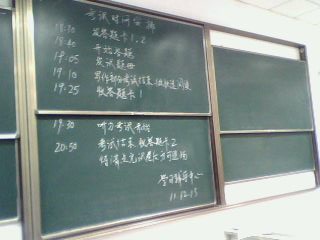 考试时间安排
18:30 发答题卡1、2
18:40 开始答题
19:05 发试题册
19:10 写作部分考试结束,做快速阅读
19:25 收答题卡1
19:30 听力考试开始
20:50 考试结束,收答题卡2
待清点完试卷后方可退场
学习辅导中心
11.12.13